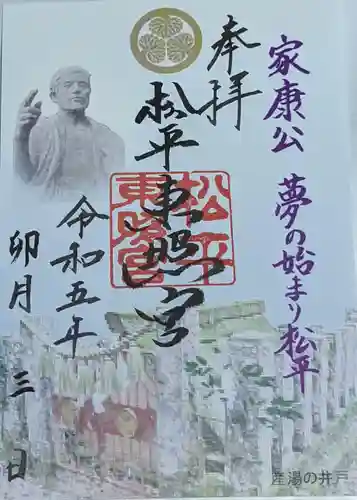 家康公 夢の始まり松平
奉拝
松平東照宮
松平
東照宮
令和五年
卯月三日
産湯の井戸